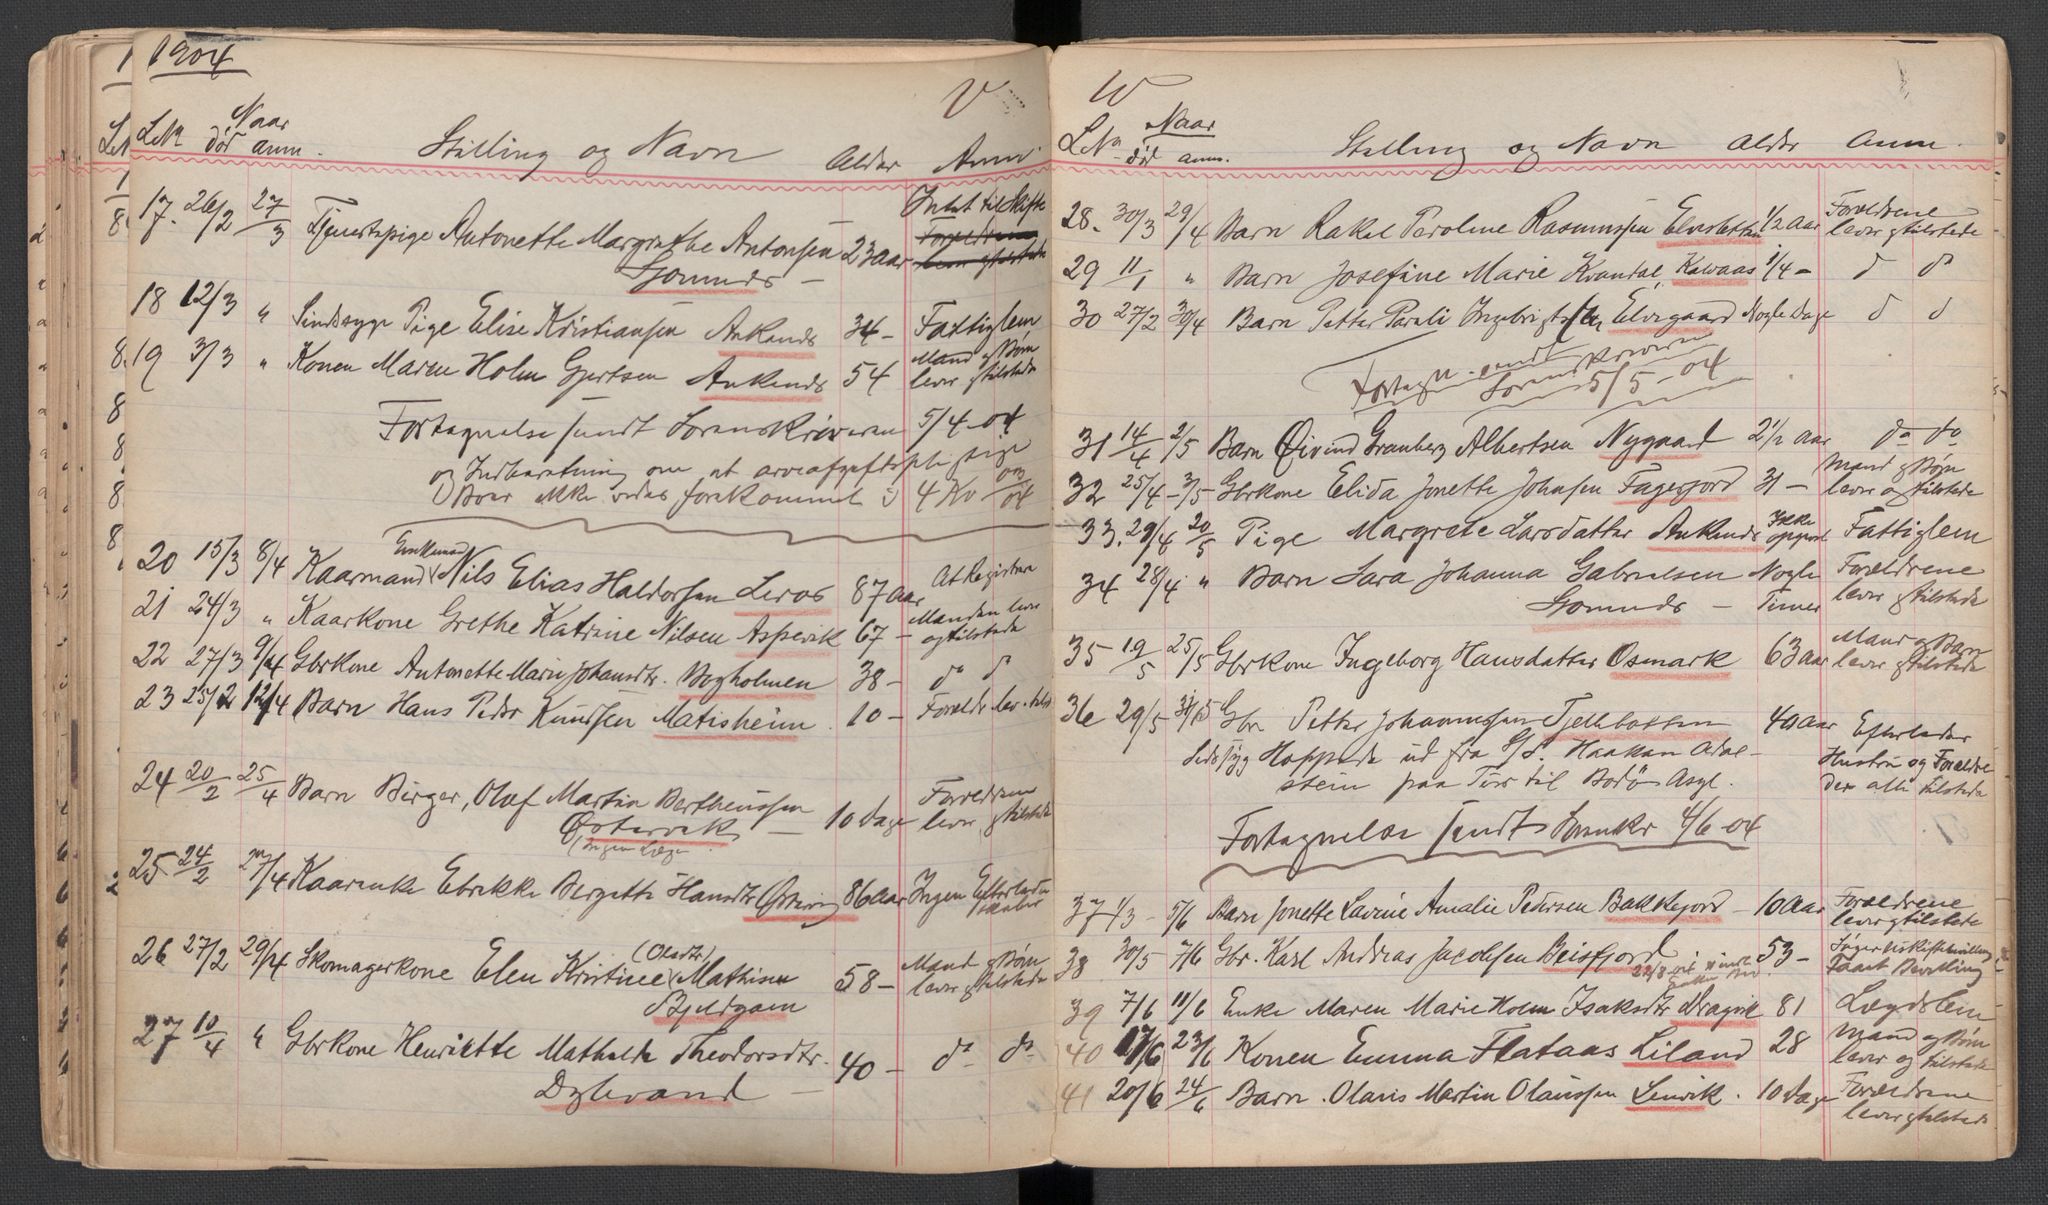 1904
V
Naar
LNr død anm. Stilling og Navn Alder Anm.
17. 26/2 27/3 Tjenestepige Antonette Margrethe Antonsen 23 aar Intet til Skifte
Forældrene
lever & tilstede
18 12/3 " Sindssyge Pige Elise Kristiansen Ankenes 34 – Fattiglem
19 3/3 " Konen Maren Holm Gjertsen Ankenes 54 Mand & Børn
lever & tilstede
Fortegnelse sendt Sorenskriveren 5/4-04
og Indberetning om at arveafgiftspligtige
Boer ikke vides forekommet i 4 Kv 03/04
20 15/3 8/4 Kaarmand Enkemand Nils Elias Haldorsen Leros 87 aar At Registrere
21 24/3 " Kaarkone Grethe Katrine Nilsen Aspevik 67 – Manden lever
og tilstede
22 27/3 9/4 Gbrkone Antonette Marie Johansdtr. Bogholmen 38 – do do
23 25/2 12/4 Barn Hans Peder Knudsen Matisheim. 10 – Forældr. lev. & tilst
24 20/2 25/4 Barn Birger, Oluf Martin Bertheussen 10 Dage Forældrene
Østervik – lever & tilstede
(Ingen Læge)
25 24/2 27/4 Kaarenke Ebrekke Bergitte Hansdtr 86 aar Ingen Efterladte
26 27/2 29/4 Skomagerkone Elen Kristine (Olsdtr) Mathisen 58 – Mand & Børn
Bjeldgam lever & tilstede
27 10/4 " Gbrkone Henriette Mathilde Theodorsdtr. 40 – do do
Dybvand –
Naar
LNr død anm. Stilling og Navn Alder Anm.
28. 30/3 29/4 Barn Rakel Peroline Rasmussen Elvesletten 1/2 aar Forældrene
lever & tilstede
29 11/1 " Barn Josefine Marie Kvandal, Kavaas 1/4 – do do
30 27/2 30/4 Barn Petter Pareli Ingebrigtsen Elvegaard Nogle Dage do do
Fortegn. sendt
Sorenskriveren
5/5-04
31 14/4 2/5 Barn Øivind Granberg Albertsen Nygaard 2 1/2 aar do do
32 25/4 – 3/5 Gbrkone Elida Jonette Johnsen Fagerjord 31 – Mand & Børn
lever og tilstede
33. 29/4 20/5 Pige Margrete Larsdatter Ankenes Ikke opgivet Fattiglem
34 28/4 " Barn Sara Johanna Gabrielsen Nogle Forældrene
Timer lever & tilstede
35 19/5 25/5 Gbrkone Ingeborg Hansdatter Osmark 63 aar Mand og Børn
lever & tilstede
36 29/5 31/5 Gbr Petter Johannessen Fjellbotten 40 aar Efterlader
Sindssyg Hoppede ud fra D/S. Haakon Adal- Hustru og Forældre
stein paa Tur til Bodø Asyl. der alle tilstede
Fortegnelse sendt Sorenskr 4/6-04
37 1/3 – 5/6 Barn Jonette Lavine Amalie Petersen Bakkejord – 10 Aar Forældrene
lever & tilstede
38 30/5 7/6 Gbr. Karl Andreas Jacobsen Beisfjord 53 –
Faaet Bevilling
39 7/6 11/6 Enke Maren Marie Holm Isaksdtr Dragvik 81 Lægdslem
40 17/6 23/6 Konen Emma Flataas Liland 28 Mand & Børn
lever og tilstede
41 20/6 24/6 Barn. Olaus Martin Olaussen Lenvik. 10 Dage Forældrene
lever & tilstede